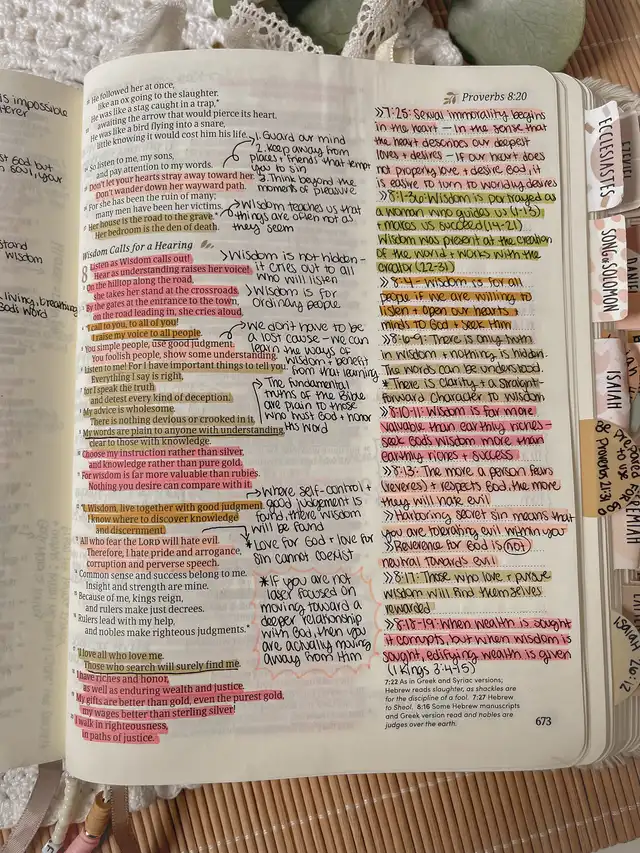 is impossible
st God but
n soul, your
stand
wisdom
Living, breathing
God's word
22 He followed her at once,
like an ox going to the slaughter.
He was like a stag caught in a trap,*
23 awaiting the arrow that would pierce its heart.
He was like a bird flying into a snare,
little knowing it would cost him his life.
24 So listen to me, my sons,
and pay attention to my words.
25 Don't let your hearts stray away toward her.
Don't wander down her wayward path.
26 For she has been the ruin of many;
many men have been her victims.
27 Her house is the road to the grave.*
Her bedroom is the den of death.
1. Guard our mind
2. Keep away from
places + friends that tempt
you to sin
3. Think beyond the
moments of pleasure
Wisdom teaches us that
things are often not as
they seem
Wisdom Calls for a Hearing
8 Listen as Wisdom calls out!
Hear as understanding raises her voice!
2 On the hilltop along the road,
she takes her stand at the crossroads.
3 By the gates at the entrance to the town,
on the road leading in, she cries aloud,
4 "I call to you, to all of you!
I raise my voice to all people.
5 You simple people, use good judgment.
You foolish people, show some understanding.
6 Listen to me! For I have important things to tell you.
Everything I say is right,
7 for I speak the truth
and detest every kind of deception.
8 My advice is wholesome.
There is nothing devious or crooked in it.
9 My words are plain to anyone with understanding,
clear to those with knowledge.
10 Choose my instruction rather than silver,
and knowledge rather than pure gold.
11 For wisdom is far more valuable than rubies.
Nothing you desire can compare with it.
12 "I, Wisdom, live together with good judgment.
I know where to discover knowledge
and discernment.
13 All who fear the LORD will hate evil.
Therefore, I hate pride and arrogance,
corruption and perverse speech.
14 Common sense and success belong to me.
Insight and strength are mine.
15 Because of me, kings reign,
and rulers make just decrees.
16 Rulers lead with my help,
and nobles make righteous judgments.*
17 "I love all who love me.
Those who search will surely find me.
18 I have riches and honor,
as well as enduring wealth and justice.
19 My gifts are better than gold, even the purest gold,
my wages better than sterling silver!
20 I walk in righteousness,
in paths of justice.
>Wisdom is not hidden-
it cries out to all
who will listen
>Wisdom is for
ordinary people
We don't have to be
a lost cause - we can
learn in the ways of
wisdom + benefit
from that learning
The fundamental
truths of the Bible
are plain to those
who trust God + honor
His word
Where self-control +
good judgement is
found, there wisdom
will be found
*Love for God + love for
sin cannot coexist
*If you are not
laser focused on
moving toward a
deeper relationship
with God, then you
are actually moving
away from Him
Proverbs 8:20
>>7:25: Sexual immorality begins
in the heart - in the sense that
the heart describes our deepest
loves + desires - if our heart does
not properly love + desire God, it
is easier to turn to worldly desires
>>8:1-36: Wisdom is portrayed as
a woman who guides us (1-13)
+ makes us succeed (14-21)
Wisdom was present at the creation
of the world + works with the
creator (22-31)
>>8:4: Wisdom is for all
people if we are willing to
listen + open our hearts +
minds to God + seek Him
>>8:6-9: There is only truth
in wisdom + nothing is hidden.
The words can be understood.
* There is clarity + a straight-
forward character to wisdom
>>8:10-11: Wisdom is far more
valuable than earthly riches -
seek God's wisdom more than
earthly riches + success
>>8:13: The more a person fears
(reveres) + respects God, the more
they will hate evil
>>Harboring secret sin means that
you are tolerating evil within you
>>Reverence for God is not
neutral towards evil
>>8:17: Those who love + pursue
wisdom will find themselves
rewarded
>>8:18-19: When wealth is sought
it corrupts, but when wisdom is
sought, edifying wealth is given
(1 Kings 3:4-15)
7:22 As in Greek and Syriac versions;
Hebrew reads slaughter, as shackles are
for the discipline of a fool. 7:27 Hebrew
to Sheol. 8:16 Some Hebrew manuscripts
and Greek version read and nobles are
judges over the earth.
673
ECCLESIASTES
SONG OF SOLOMON
DANIEL
ISAIAH
JEREMIAH
Proverbs 21:31